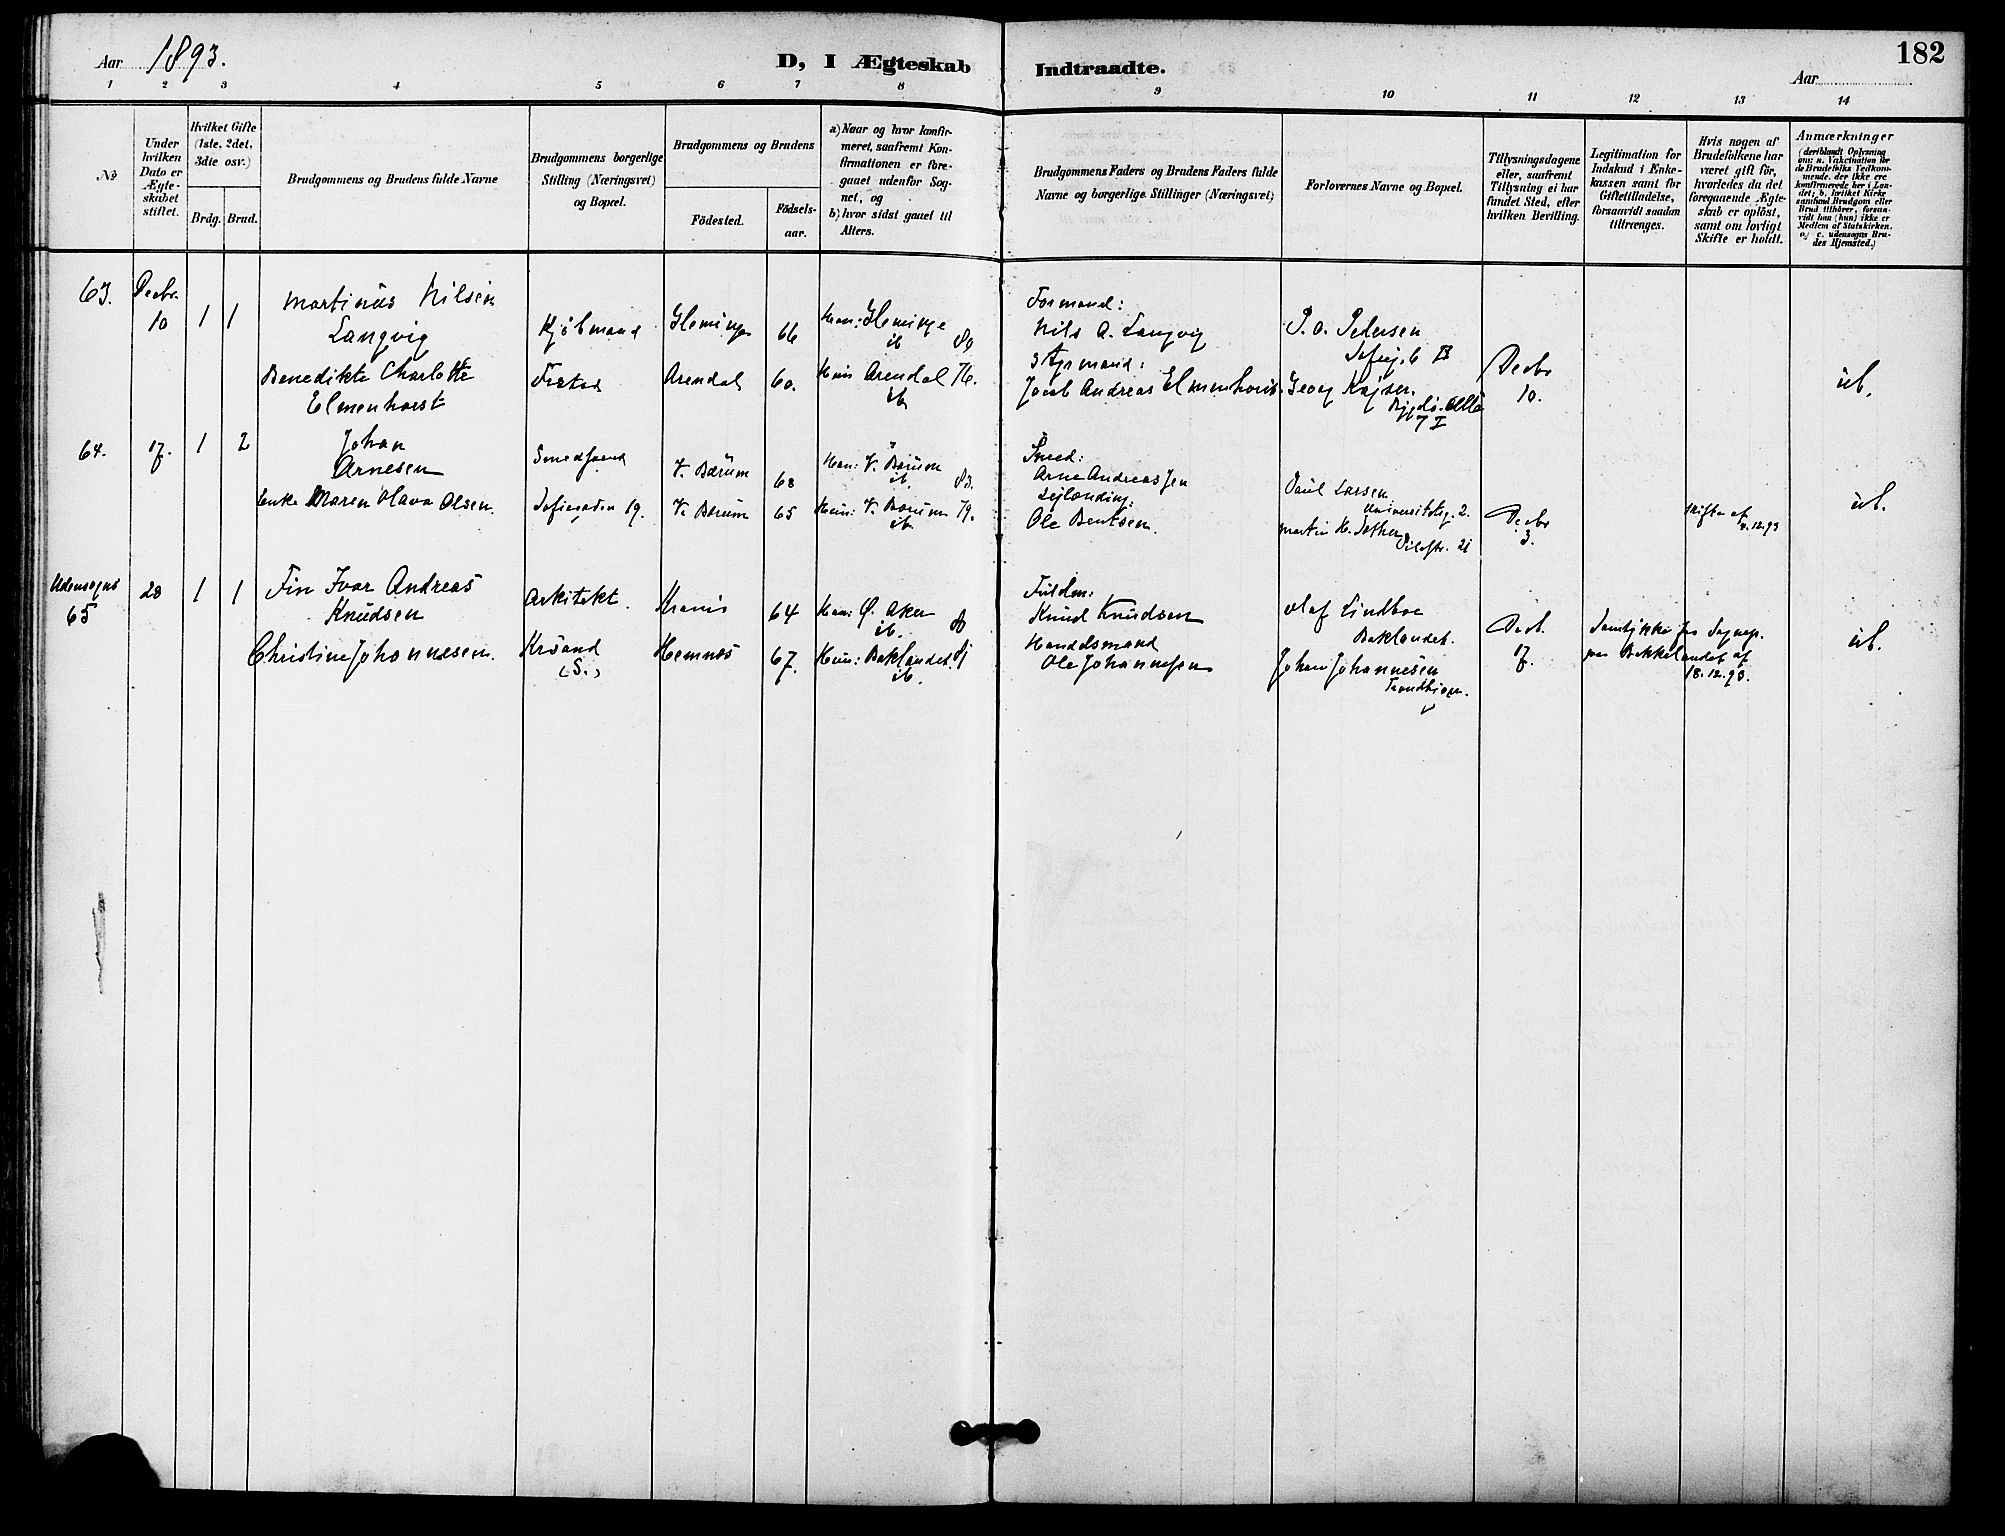 Aar 1893.
D, I Ægteskab Indtraadte.
182
Aar
1 2 3 4 5 6 7 8 9 10 11 12 13 14
No
Under hvilken Dato er Ægteskabet stiftet.
Hvilket Gifte (1ste, 2det, 3die osv.)
Brdg. Brud.
Brudgommens og Brudens fulde Navne
Brudgommens borgerlige Stilling (Næringsvei) og Bopæl.
Brudgommens og Brudens
Födested.
Födselsaar.
a) Naar og hvor konfirmeret, saafremt Konfirmationen er foregaaet udenfor Sognet, og
b) hvor sidst gaaet til Alters.
Brudgommens Faders og Brudens Faders fulde Navne og borgerlige Stillinger (Næringsvei)
Forlovernes Navne og Bopæl.
Tillysningsdagene eller, saafremt Tillysning ei har fundet Sted, efter hvilken Bevilling.
Legitimation for Indskud i Enkekassen samt for Giftetilladelse, forsaavidt saadan tiltrænges.
Hvis nogen af Brudefolkene har været gift før, hvorledes da det foregaaende Ægteskab er opløst, samt om lovligt Skifte er holdt.
Anmærkninger
(deriblandt Oplysning om: a. Vakcination for de Brudefolks Vedkommende, der ikke ere konfirmerede her i Landet; b. hvilket Kirkesamfund Brudgom eller Brud tilhører, forsaavidt han (hun) ikke er Medlem af Statskirken, og c. udensogns Brudes Hjemsted.)
63. Decbr. 10 1 1
Martinus Nilsen
Langvig
Kjöbmand
66
ib
Formand:
Nils A. Langvig
P. A. Pedersen
Benedikte Charlotte
Elmenhorst
Arendal 60. Arendal 76.
ib
Styrmand:
Jacob Andreas Elmenhorst
Georg Kejser.
Decbr
10.
ub.
64. 17. 1 2
Johan
Arnesen
Smedsvend
V. Bærum 68
Han: V. Bærum 83.
ib
Smed:
Arne Andreassen
Paul Larsen
Universitetsg. 2.
Enke Maren Olava Olsen.
Sofiegaden 19.
V. Bærum 65 Hun: V. Bærum 79.
ib
Ole Bentsen.
Martin H.
Pilestr. 21
Decbr
3.
Skifte af
ub.
Udensogns
65 28 1 1
Fin Ivar Andreas
Knudsen
Arkitekt.
64 Han: Ø. Aker 80
ib.
Fuldm:
Knud Knudsen
Olaf Lindboe
Baklandet.
Christine Johannesen.
Krsand
(S.)
Hemnes 67. Hun: Baklandet.
ib.
Handelsmand
Ole Johannessen
Johan Johannesen
Trondhjem.
Decb.
17.
Samtykke fra Sognep.
paa Bakkelandet af
18.12.93.
ub.